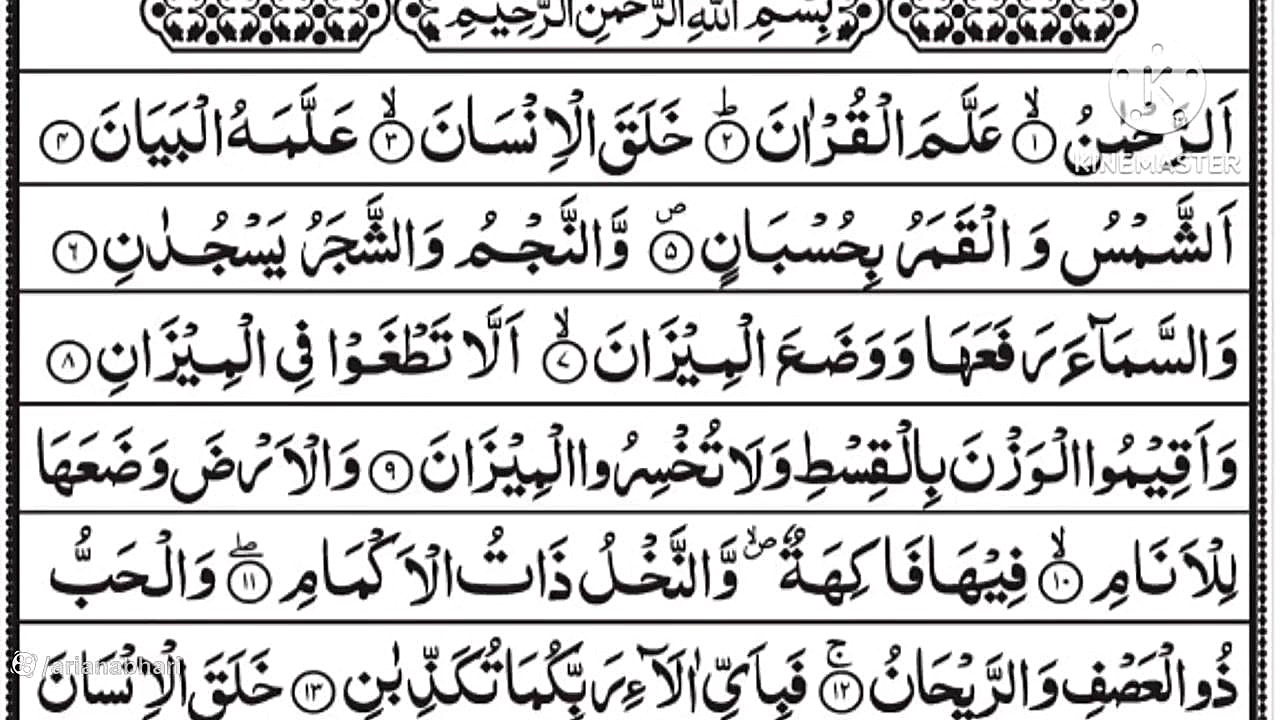 بِسْمِ اللّٰهِ الرَّحْمٰنِ الرَّحِيْمِ
اَلرَّحْمٰنُ ۙ﴿۱﴾ عَلَّمَ الْقُرْاٰنَ ؕ﴿۲﴾ خَلَقَ الْاِنْسَانَ ۙ﴿۳﴾ عَلَّمَهُ الْبَيَانَ ﴿۴﴾
اَلشَّمْسُ وَ الْقَمَرُ بِحُسْبَانٍ ۪﴿۵﴾ وَّالنَّجْمُ وَالشَّجَرُ يَسْجُدٰنِ ﴿۶﴾
وَالسَّمَآءَ رَفَعَهَا وَوَضَعَ الْمِيْزَانَ ۙ﴿۷﴾ اَلَّا تَطْغَوْا فِي الْمِيْزَانِ ﴿۸﴾
وَاَقِيْمُوا الْوَزْنَ بِالْقِسْطِ وَلَا تُخْسِرُوا الْمِيْزَانَ ﴿۹﴾ وَالْاَرْضَ وَضَعَهَا
لِلْاَنَامِ ۙ﴿۱۰﴾ فِيْهَا فَاكِهَةٌ ۪ۙ وَّالنَّخْلُ ذَاتُ الْاَكْمَامِ ۖ﴿۱۱﴾ وَالْحَبُّ
ذُو الْعَصْفِ وَالرَّيْحَانُ ۚ﴿۱۲﴾ فَبِاَيِّ اٰلَآءِ رَبِّكُمَا تُكَذِّبٰنِ ﴿۱۳﴾ خَلَقَ الْاِنْسَانَ
KINEMASTER
/arianabhari